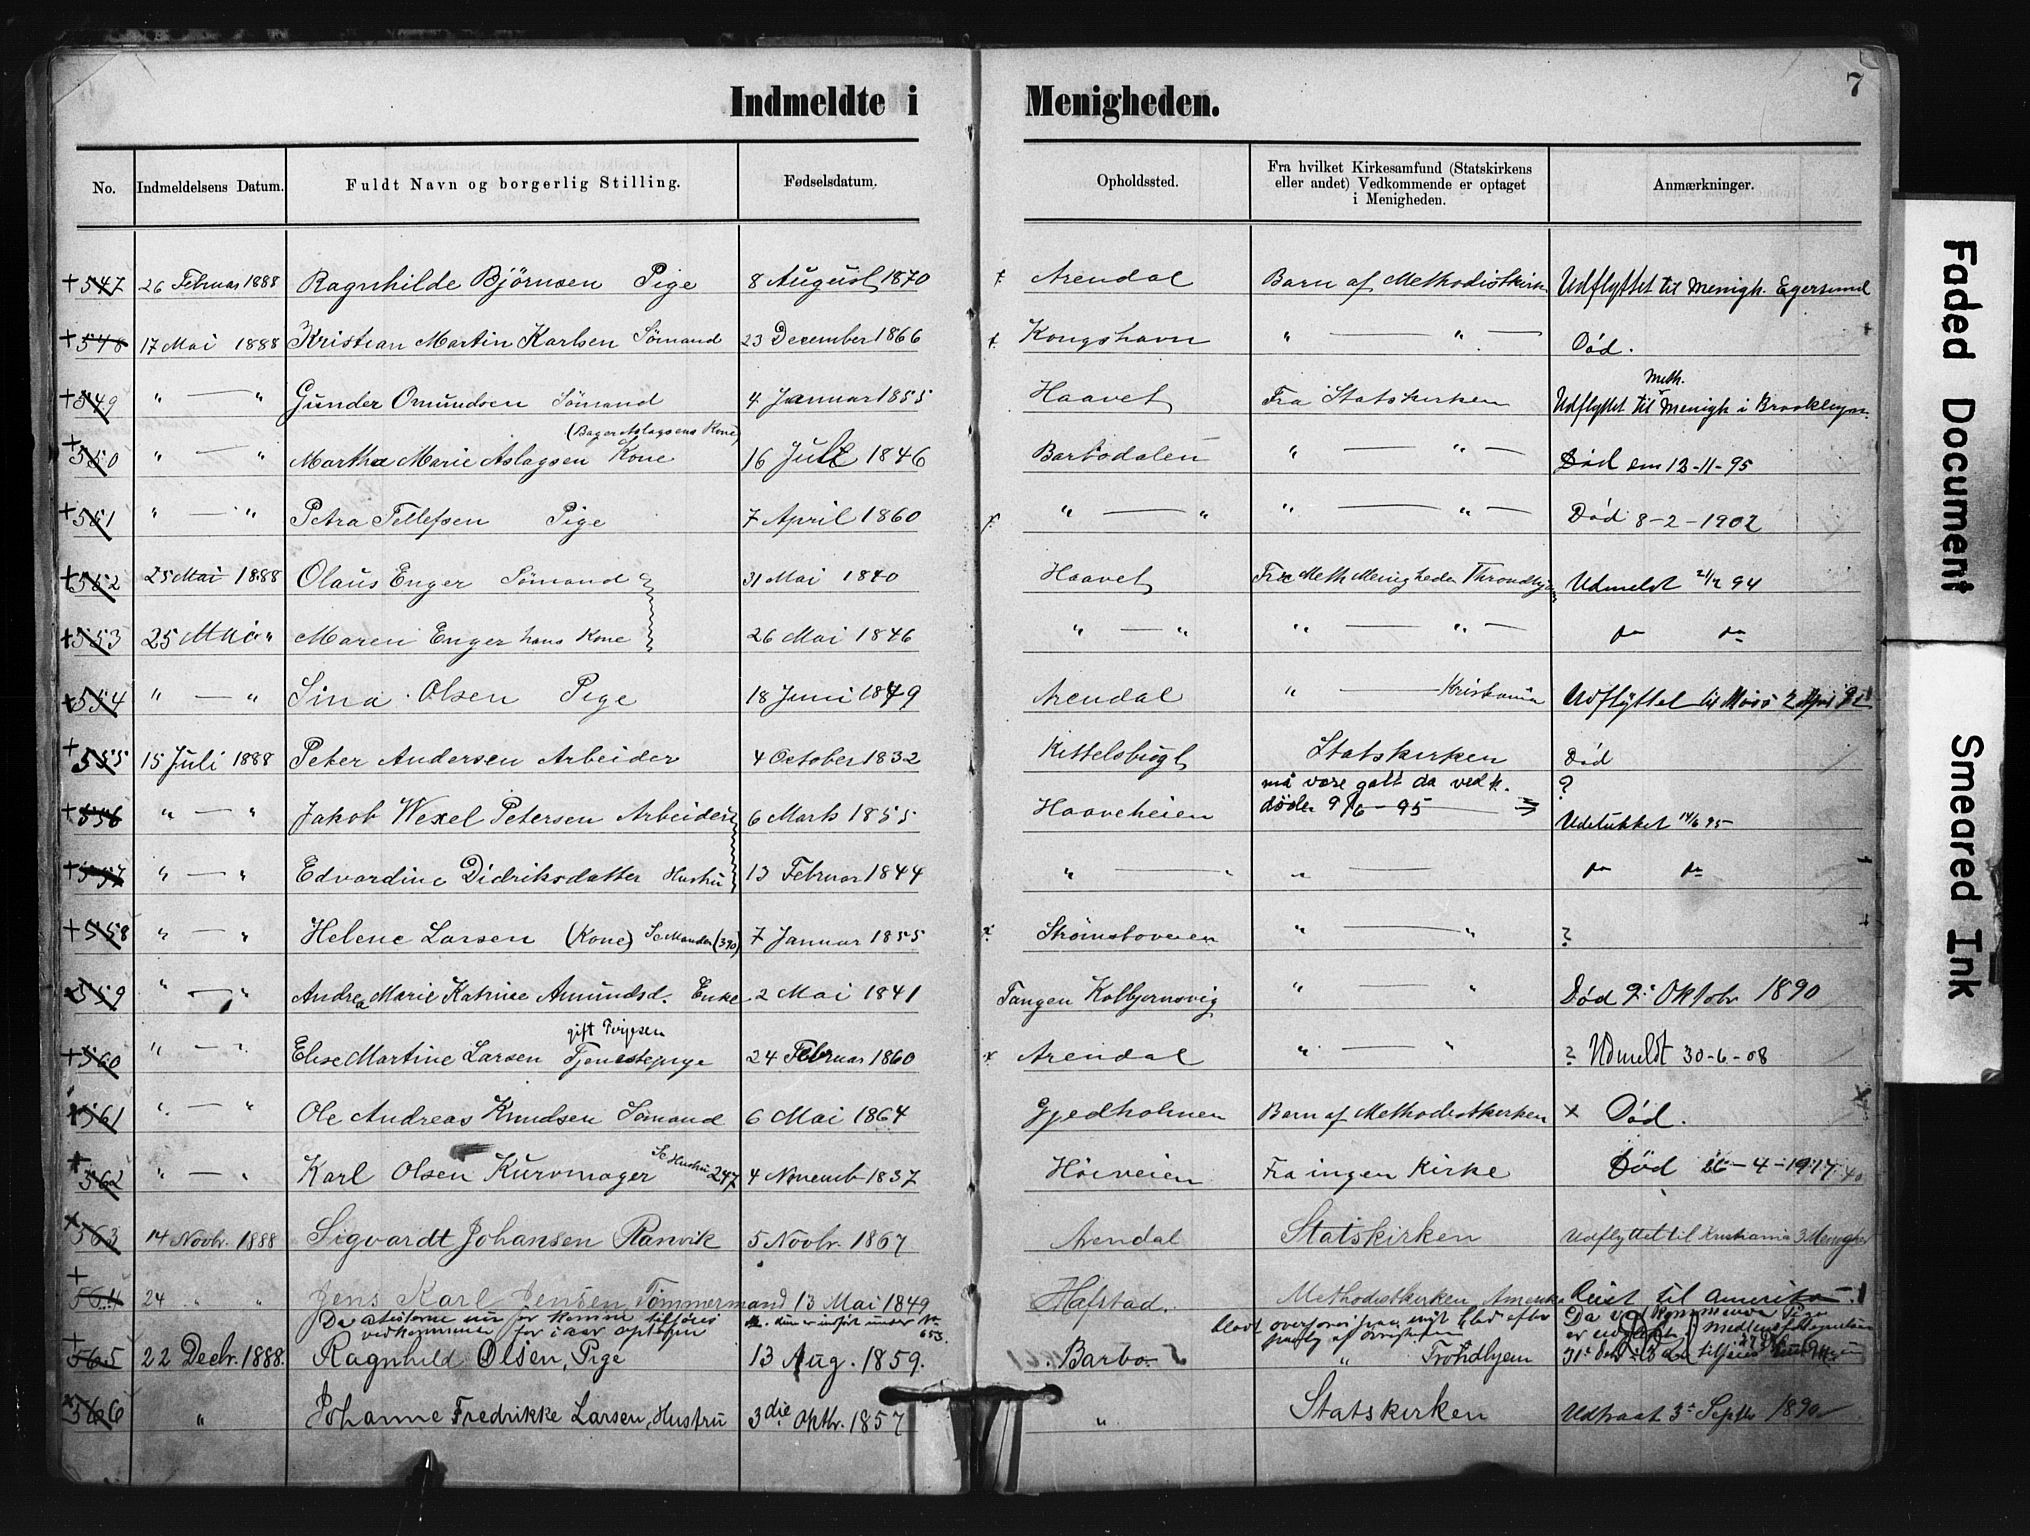 7
Indmeldte i Menigheden.
No. Indmeldelsens Datum. Fuldt Navn og borgerlig Stilling. Fødselsdatum. Opholdssted. Fra hvilket Kirkesamfund (Statskirkens eller andet) Vedkommende er optaget i Menigheden. Anmærkninger.
+ 547 26 Februar 1888 Ragnhilde Bjørnsen Pige 8 August 1870 Arendal Barn af Methodistkirken Udflyttet til Menigh. Egersund
+ 548 17 Mai 1888 Kristian Martin Karlsen Sømand 23 December 1866 Kongshavn " — " — Død.
Meth.
+ 549 " — " Gunder Omundsen Sømand 4 Januar 1855 Haavet Fra Statskirken Udflyttet til Menigh i Brooklyn
(Bager Aslagsens Kone)
+ 550 " — " Martha Marie Aslagsen Kone 16 Juli 1846 Barbodalen " — " — Død em 13-11-95
+ 551 " — " Petra Tellefsen Pige 7 April 1860 " — " " — " — Død 8-2-1902
+ 552 25 Mai 1888 Olaus Enger Sømand 31 Mai 1840 Haavet Fra Meth Menigheden Throndhjem Udmeldt 21/2 94
+ 553 25 Mai " Maren Enger hans Kone 26 Mai 1846 " — " " — " —
554 " — " Sina Olsen Pige 18 Juni 1849 Arendal " — Kristania Udflyttet til Moss 2 April 92
+ 555 15 Juli 1888 Peter Andersen Arbeider 4 October 1832 Kittelsbugt Statskirken Død
må være galt da vedk. ?
+ 556 " — " Jakob Wexel Petersen Arbeider 6 Marts 1855 Haaveheien døde 9/6-95 Udelukket 14/6 95
+ 557 " — " Edvardine Didriksdatter Hustru 13 Februar 1844 " — " " —
+ 558 " — " Helene Larsen (Kone) Se Manden (390) 7 Januar 1855 Strømsboveien " — " ?
559 " — " Andrea Marie Katrine Amundsd. Enke 2 Mai 1841 Tangen Kolbjernsvig " — " Død 9. Oktobr 1890
gift
+ 560 " — " Elise Martine Larsen Tjenestepige 24 Februar 1860 Arendal " — " ? Udmeldt 30-6-08
561 " — " Ole Andreas Knudsen Sømand 6 Mai 1864 Gjedholmen Barn af Methodistkirken x Død.
+ 562 " — " Karl Olsen Kurvmager Se Hustru 247 4 Novemb 1837 Høiveien Fra ingen Kirke Død 26-4-1917
x 563 14 Novbr. 1888 Sigvardt Johansen Ranvik 5 Novbr. 1867 Arendal Statskirken Udflyttet til Kristiania 3 Menighed
+ 564 24 " " Jens Karl Jensen Tømmermand 13 Mai 1849 Hafstad. Methodistkirken Amerika Reist til Amerika
+ 565 22 Decbr. 1888. Ragnhild Olsen, Pige 13 Aug. 1859. Barbo " Trondhjem
x 566 " Johanne Fredrikke Larsen, Hustru 3die Oktbr. 1857 " Statskirken Udtraat 3 Septbr 1890
Faded Document
Smeared Ink